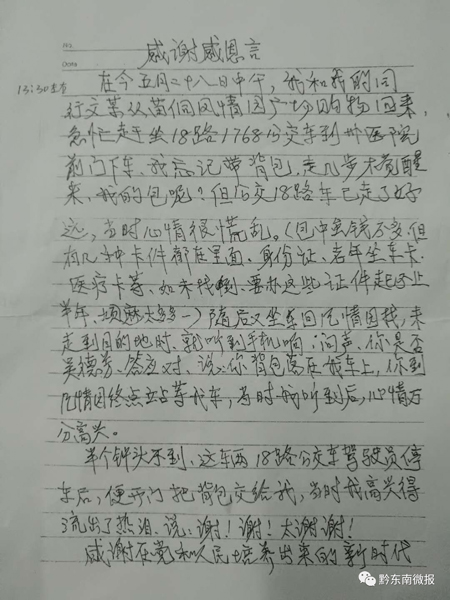 NO.
Date
感谢感恩言
13:30左右
在今五月二十八日中午,我和我的同
行文某从苗侗风情园广场购物回来,
急忙走于坐18路1768公交车到州医院
前门下车,我忘记带背包,走几步才觉醒
来,我的包呢?但公交18路车已走了好
远,当时心情很慌乱。(包中金钱不多,但
有几种卡件都在里面、身份证、老年坐车卡、
医疗卡等、如未找到、要办这些证件起码上
半年、烦麻太多多一)随后又坐车回风情园找,未
走到目的地时、就听到手机响,问声、你是否
吴德芳、答应对、说、你背包落在我车上,你到
风情园终点立占等我车,当时我听到后,心情万
分高兴。
半个钟头不到、这车两18路公交车驾驶员停
车后,便开门把背包交给我,当时我高兴得
流出了热泪、说:谢!谢!太谢谢!
感谢在党和人民培养出来的新时代
黔东南微报